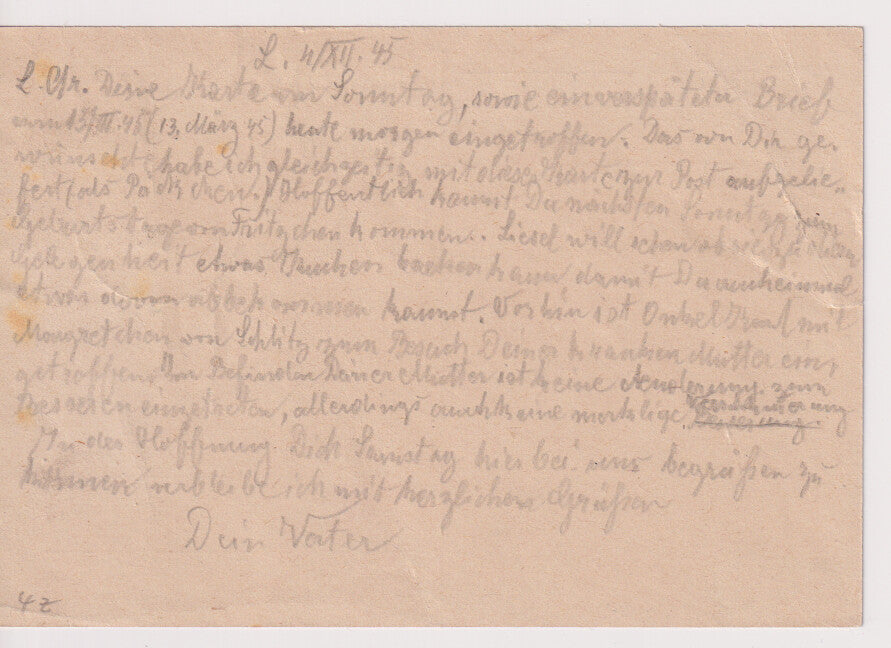 L. 4/XII. 45
L. Chr. Deine Karte von Sonntag, sowie ein verspäteter Brief
vom 13/III. 45 (13. März 45) heute morgen eingetroffen. Das von Dir ge-
wünschte habe ich gleichzeitig mit dieser Karte zur Post aufgelie-
fert (als Päckchen.) Hoffentlich kannst Du nächsten Sonntag zum
Geburtstage von Fritzchen kommen. Liesel will schon ob sie bei
Gelegenheit etwas Kuchen backen kann, damit Du auch einmal
etwas davon abbekommen kannst. Vorhin ist Onkel Karl mit
Margretchen von Schlitz zum Besuch Deiner kranken Mutter ein-
getroffen. Im Befinden Deiner Mutter ist keine Aenderung zum
Besseren eingetreten, allerdings auch keine merkliche Verschlechterung
In der Hoffnung Dich Samstag hier bei uns begrüßen zu
können verbleibe ich mit herzlichen Grüßen
Dein Vater
4 z